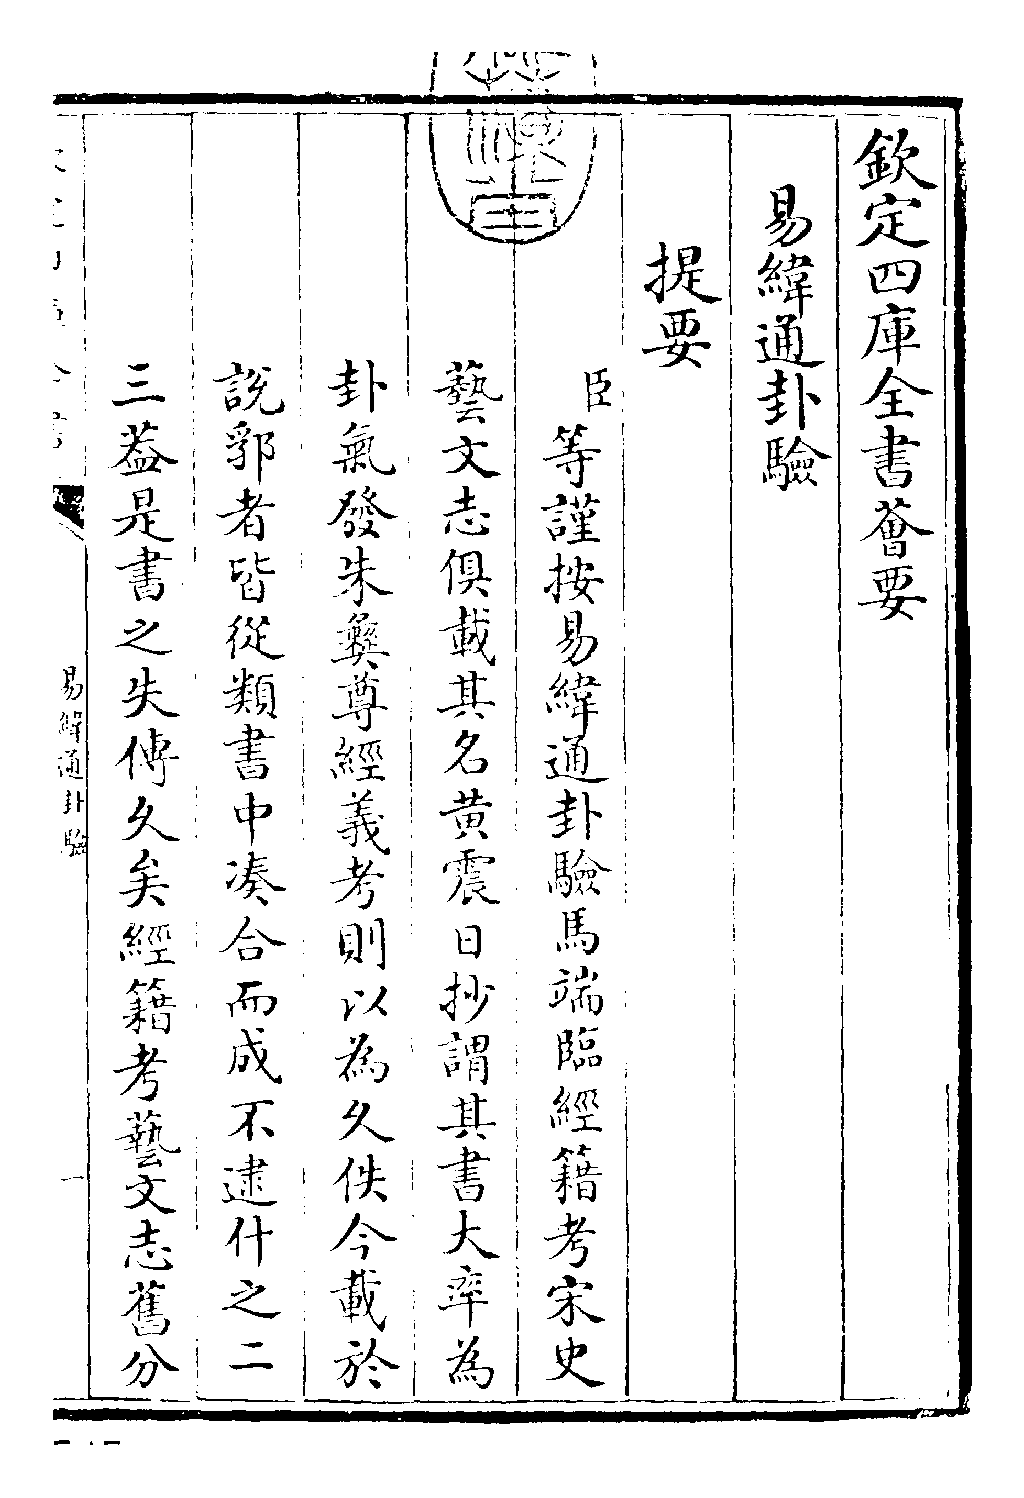 欽定四庫全書薈要
易緯通卦驗
提要
臣等謹按易緯通卦驗馬端臨經籍考宋史
藝文志俱載其名黄震日抄謂其書大率為
卦氣發朱彝尊經義考則以為久佚今載於
説郛者皆從類書中凑合而成不逮什之二
三葢是書之失傳久矣經籍考藝文志舊分
易緯通卦驗
一